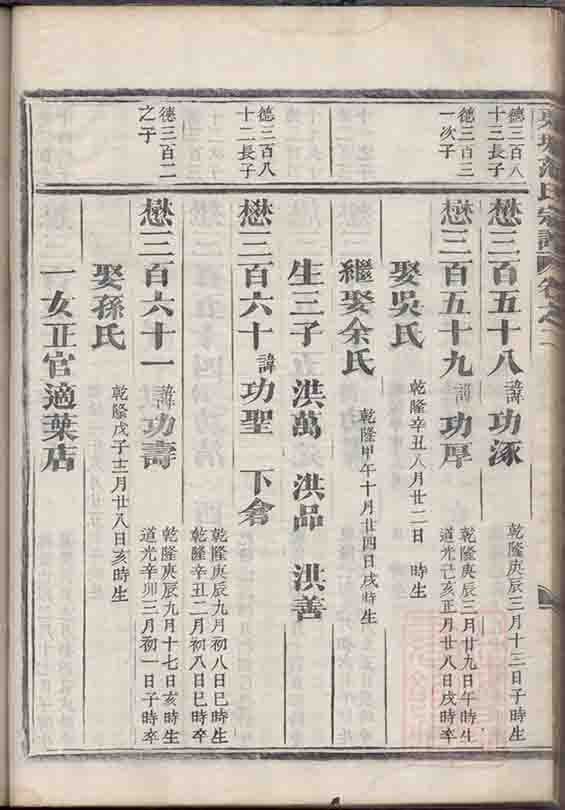 氏宗譜 卷之二
德三百八
十三長子
懋三百五十八 諱功涿 乾隆庚辰三月十三日子時生
德三百三
一次子
懋三百五十九 諱功厚 乾隆庚辰三月廿九日午時生
道光己亥正月廿八日戌時卒
娶吳氏 乾隆辛丑八月廿二日 時生
繼娶余氏 乾隆甲午十月廿四日戌時生
生三子 洪萬 洪品 洪善
德三百八
十二長子
懋三百六十 諱功聖 下倉 乾隆庚辰九月初八日巳時生
乾隆辛丑二月初八日巳時卒
德三百二
之子
懋三百六十一 諱功壽 乾隆庚辰九月十七日亥時生
道光辛卯三月初一日子時卒
娶孫氏 乾隆戊子十二月廿八日亥時生
一女正官適葉店